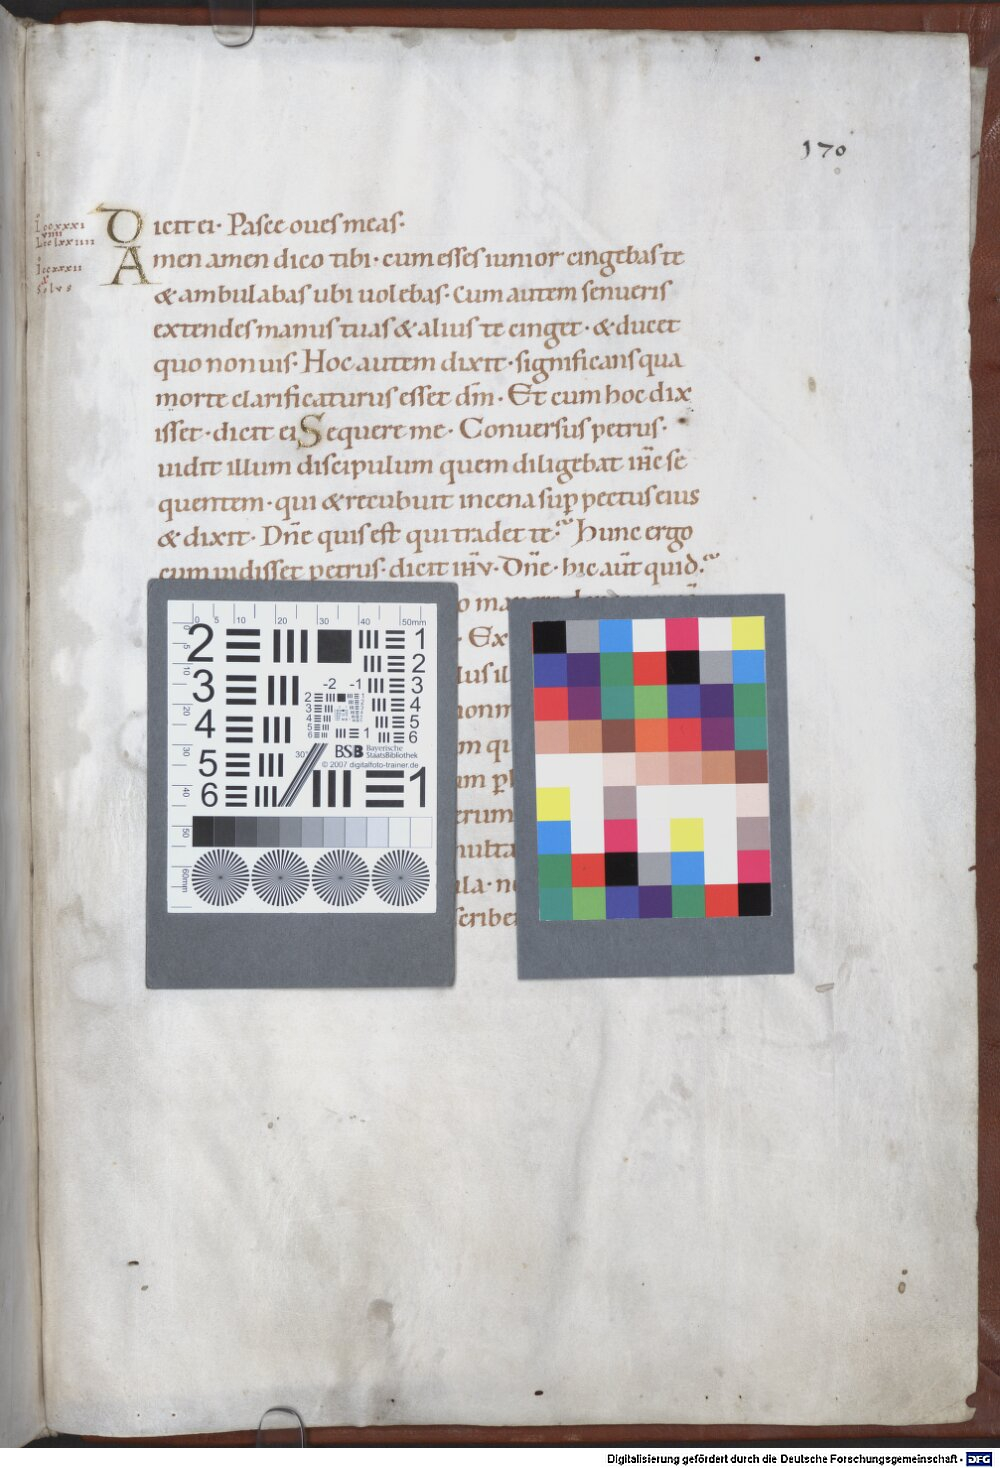 170
Dicit ei· Pasce oues meas·
Amen amen dico tibi· cum esses iunior cingebas te
& ambulabas ubi uolebas· Cum autem senueris
extendes manus tuas & alius te cinget· & ducet
quo non uis· Hoc autem dixit· significans qua
morte clarificaturus esset dm̅· Et cum hoc dix
isset· dicit ei Sequere me· Conuersus petrus·
uidit illum discipulum quem diligebat ih̅c se
quentem· qui & recubuit in cena sup̲ pectus eius
& dixit· Dn̅e quis est qui tradet te· Hunc ergo
cum uidisset petrus· dicit ih̅v· Dn̅e· hic aut̅ quid·
· Ex
erum
multa
0 5 10 20 30 40 50mm
2 1
2
3 -2 -1 3
4 4
5 5
6 6
30°
BSB Bayerische
StaatsBibliothek
© 2007 digitalfoto-trainer.de
1
60mm
Digitalisierung gefördert durch die Deutsche Forschungsgemeinschaft - DFG